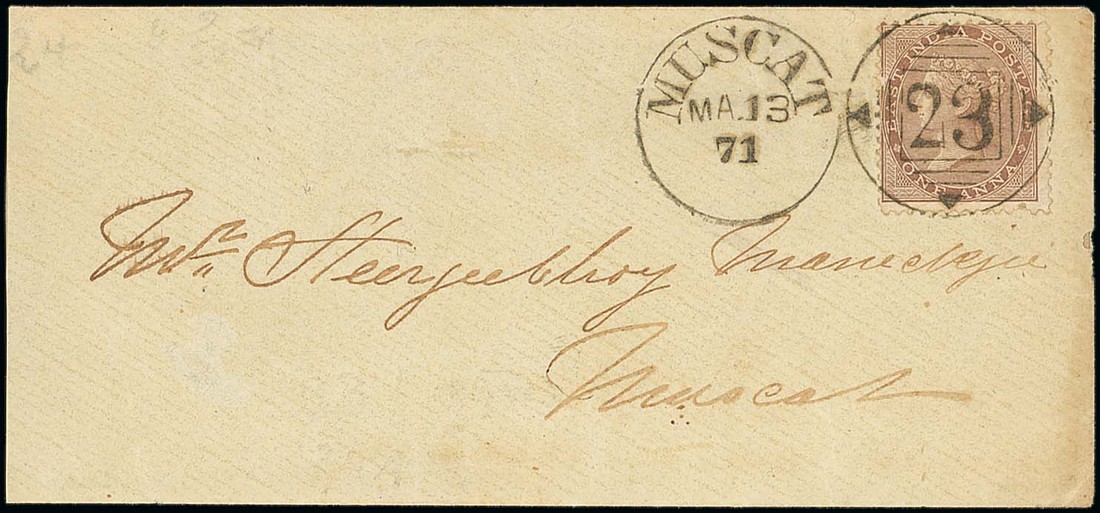 MUSCAT
MA.13
71
EAST INDIA POSTAGE
23
ONE ANNA
Mr Heerjeebhoy Maneckjee
Muscat